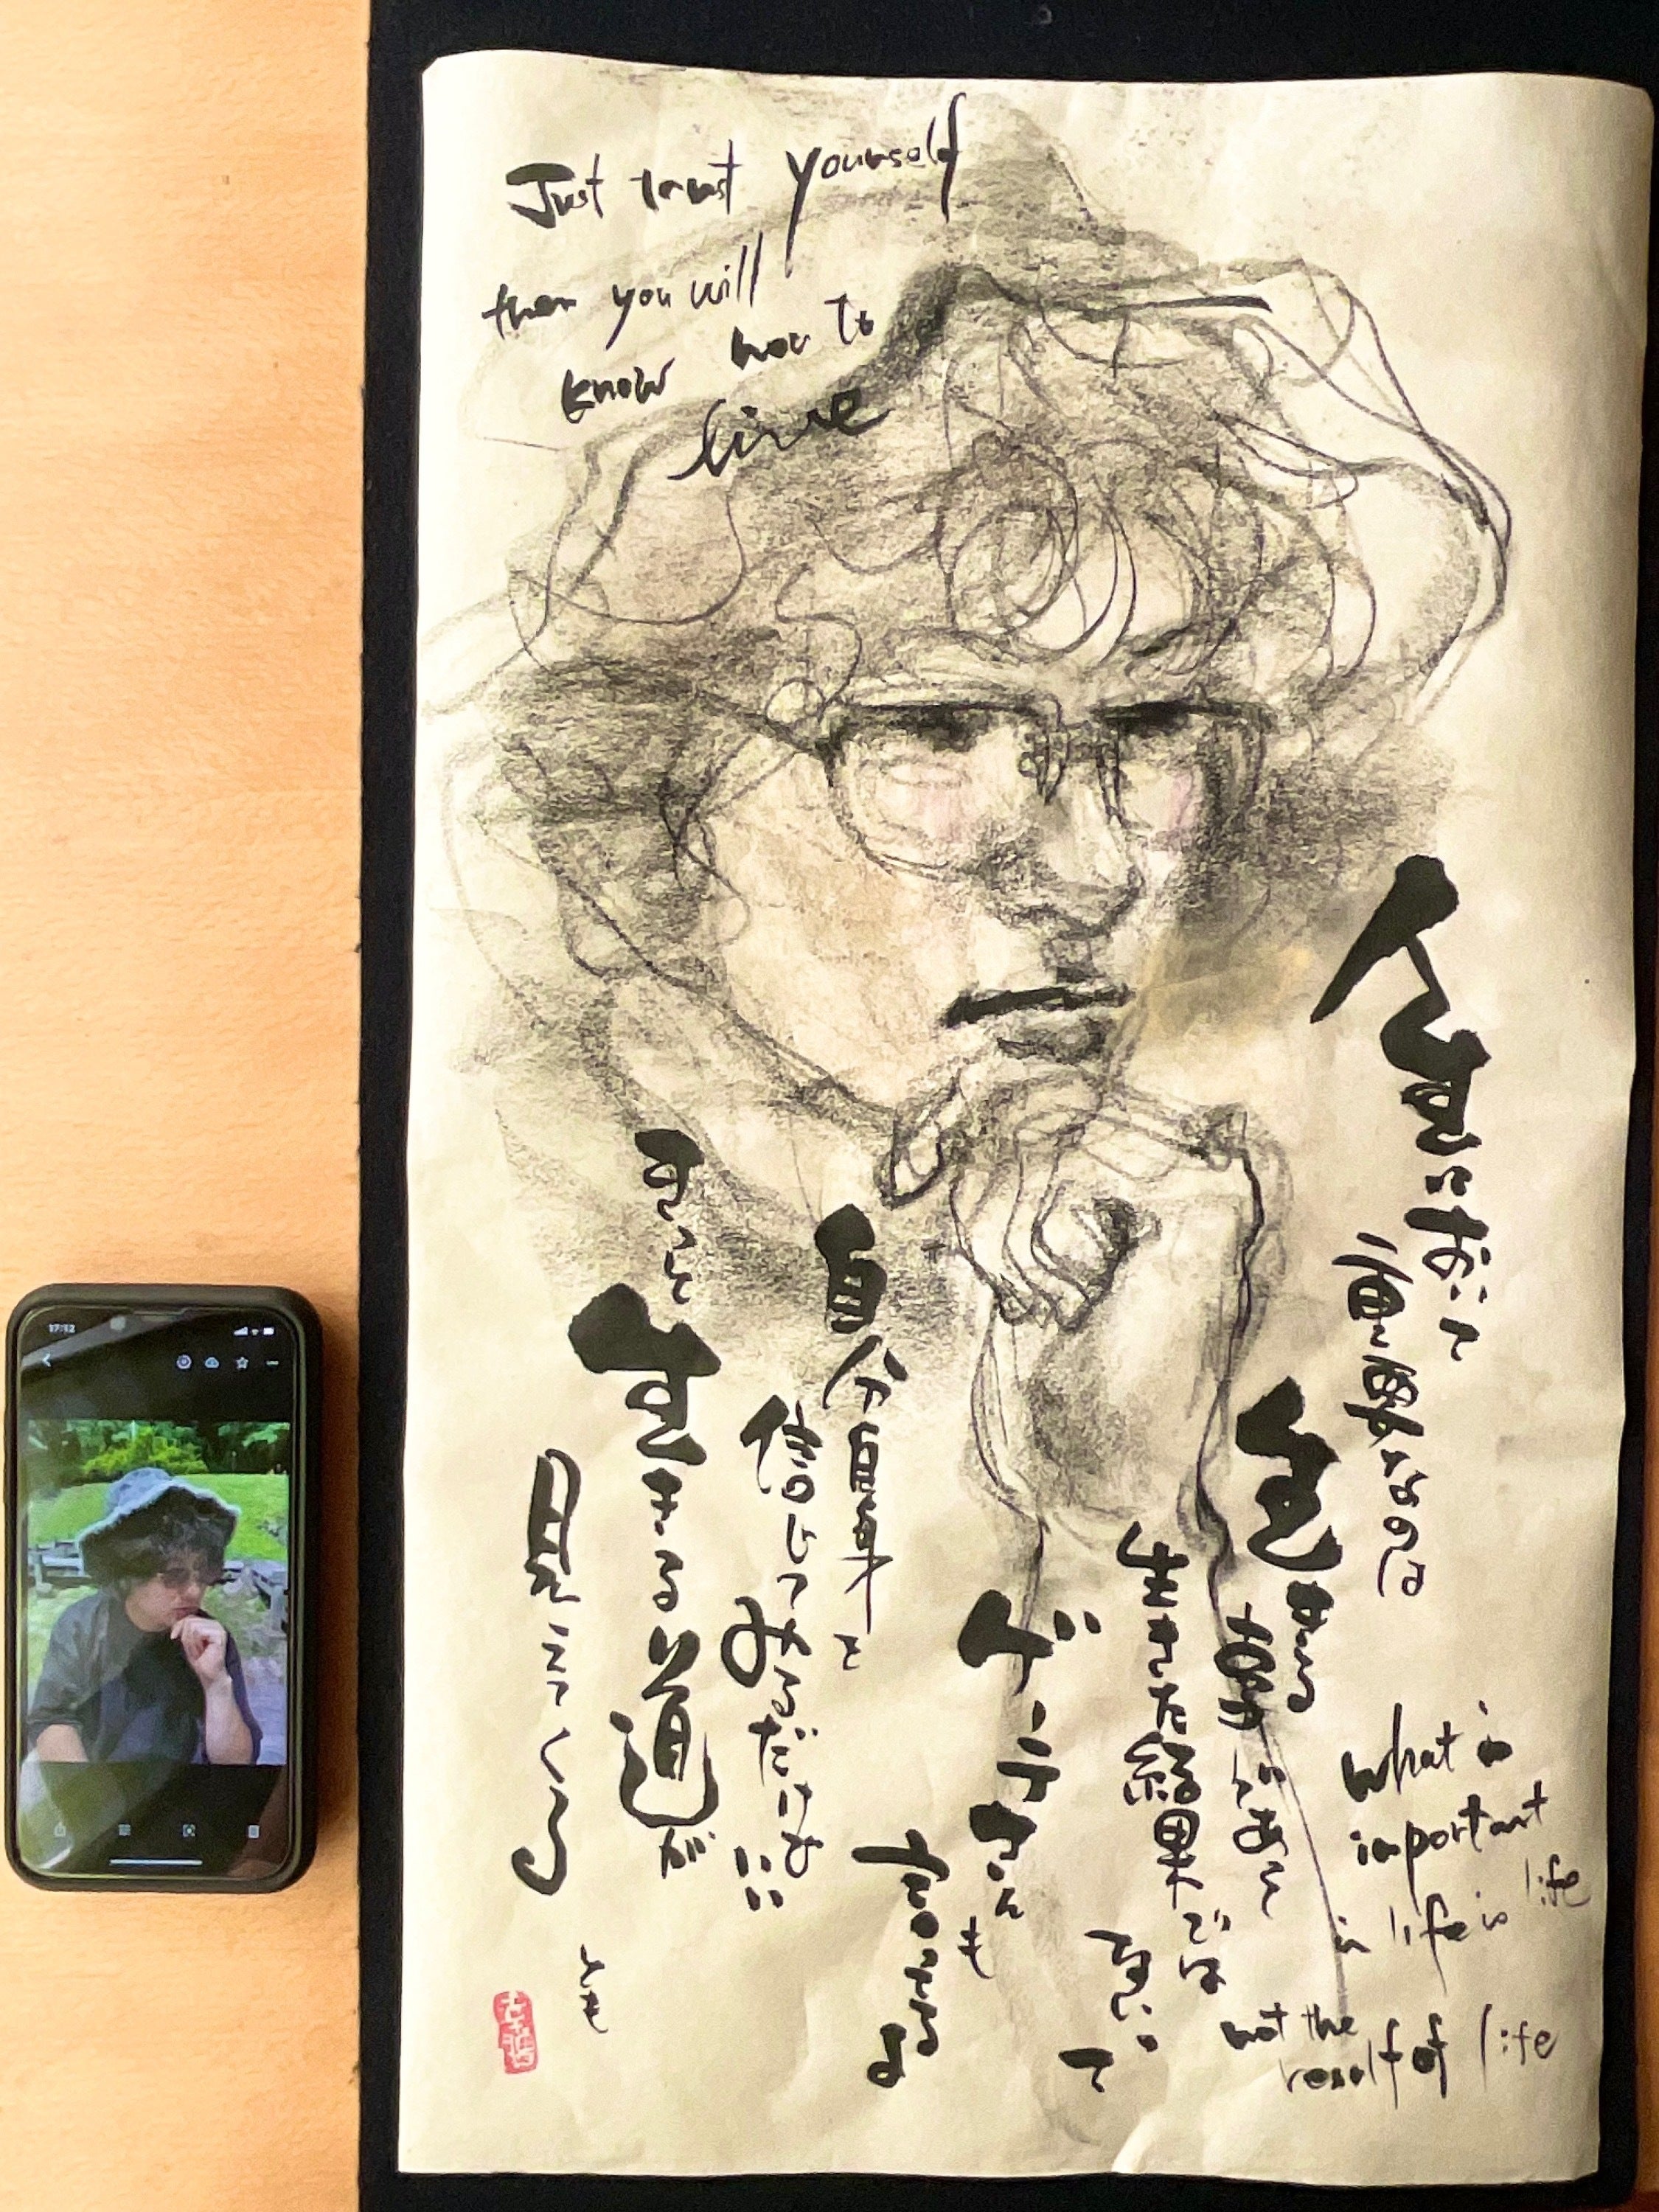 Just trust yourself
then you will
know how to
live
において
なのは
生きた結果では
ない
って
ゲーテさんも
自分自身を
信じてみるだけでいい
きっと生きる道が
見えてくる
what is
important
in life is life
not the
result of life
とも
17:12